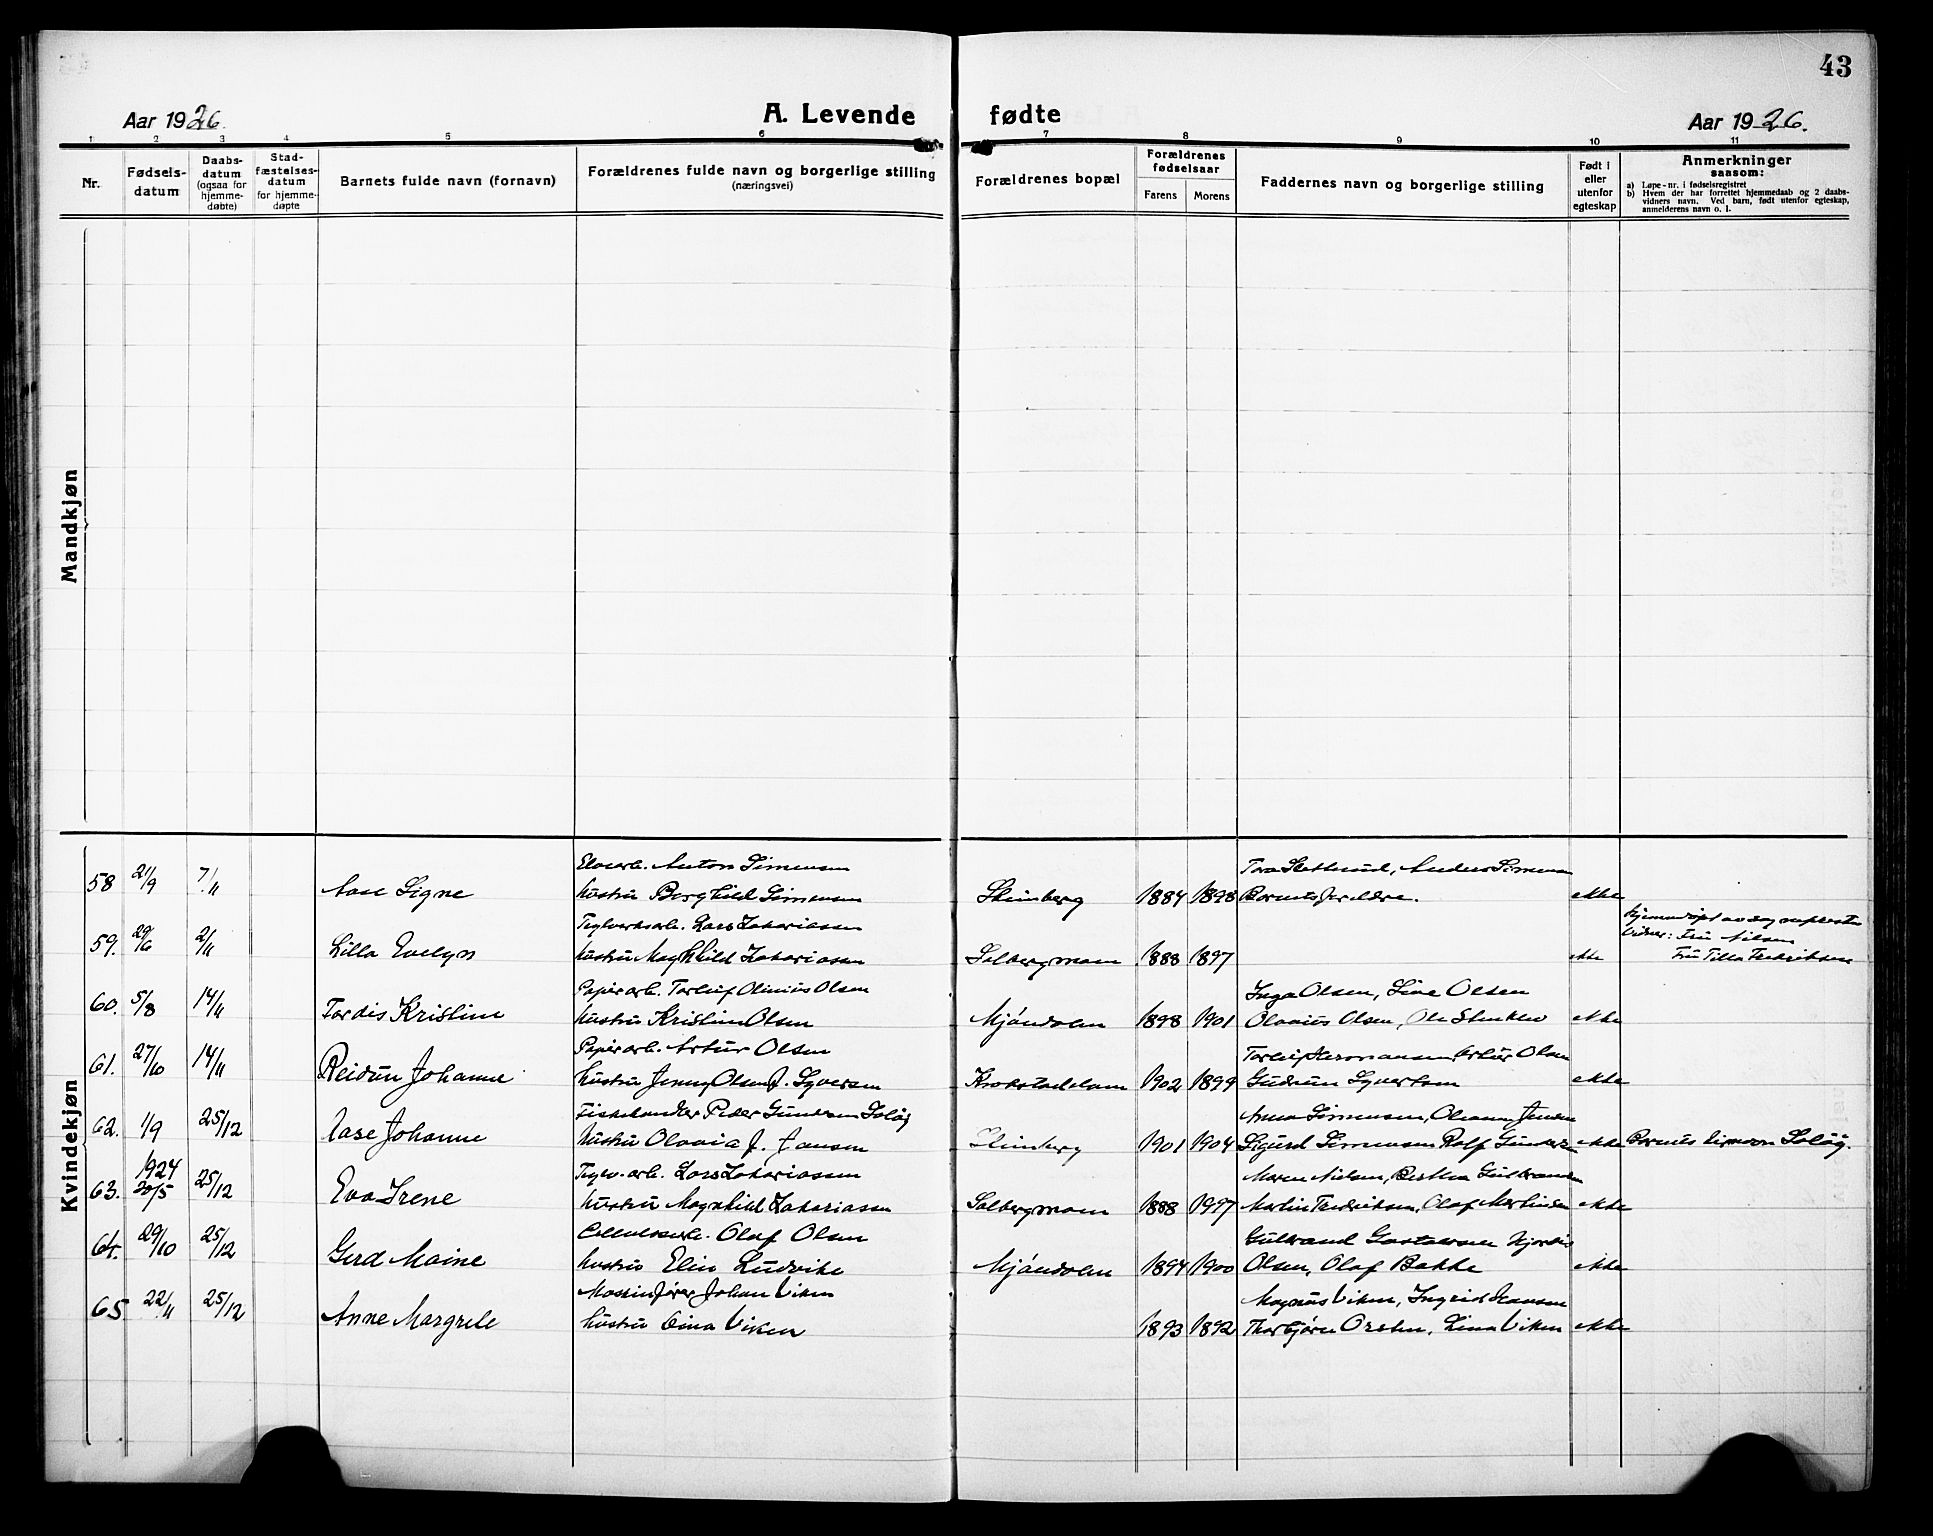 43
Aar 1926.
A. Levende fødte
Aar 1926.
1 2 3 4 5 6 7 8 9 10 11
Nr.
Fødsels-
datum
Daabs-
datum
(ogsaa for
hjemme-
døbte)
Stad-
fæstelses-
datum
for hjemme-
døpte
Barnets fulde navn (fornavn)
Forældrenes fulde navn og borgerlige stilling
(næringsvei)
Forældrenes bopæl
Forældrenes
fødselsaar
Farens Morens
Faddernes navn og borgerlige stilling
Født i
eller
utenfor
egteskap
Anmerkninger
saasom:
a) Løpe-nr. i fødselsregistret
b) Hvem der har forrettet hjemmedaab og 2 daabs-
vidners navn. Ved barn, født utenfor egteskap,
anmelderens navn o. l.
Mandkjøn
Kvindekjøn
Anton Simensen
Anders Simensen
58 21/9 7/11 Aase Signe hustru Borghild Simensen Steinberg 1884 1898 Barnets foreldre. ekte
Teglverksarb. Lars Zakariassen
Vidner: Fru Nilsen
59. 29/6 2/11 Lilla Evelyn hustru Magnhild Zakariassen Solbergmoen 1888 1897 ekte Fru Tilla Fredriksen
Papirarb. Torleif Olinius Olsen Inga Olsen, Line Olsen
60. 5/8 14/11 Tordis Kristine hustru Kristine Olsen Mjøndalen 1898 1901 Olavius Olsen, Ole ekte
Papirarb. Artur Olsen Torleif Hermansen, Artur Olsen
61. 27/10 14/11 Reidun Johanne hustru Jenny Olsen f. Syversen Krokstadelven 1902 1899 Gudrun Syvertsen ekte
Fiskehandler Peder Gundersen Soløy Anna Simensen, Jensen
62. 1/9 25/12 Aase Johanne hustru Olavia f. Jansen Steinberg 1901 1904 Sigurd Simensen Rolf ekte Barnets Soløy.
1924 Teglv. arb. Lars Zakariassen Maren Nilsen, Gulbrandsen
63. 30/5 25/12 Eva Irene hustru Magnhild Zakariassen Solbergmoen 1888 1897 Martin Fredriksen, Olaf Martinsen ekte
Cellulosearb. Olaf Olsen Gulbrand Gustavsen Hjordis
64. 29/10 25/12 Gerd Maine hustru Elin Ludvike Mjøndalen 1894 1900 Olsen, Olaf Bakke ekte
Maskinfører Johan Viken Magnus Viken, Ingrid Hansen
65 22/11 25/12 Anne Margrete hustru Lina Viken 1893 1892 Thorbjørn Orsten, Lina Viken ekte